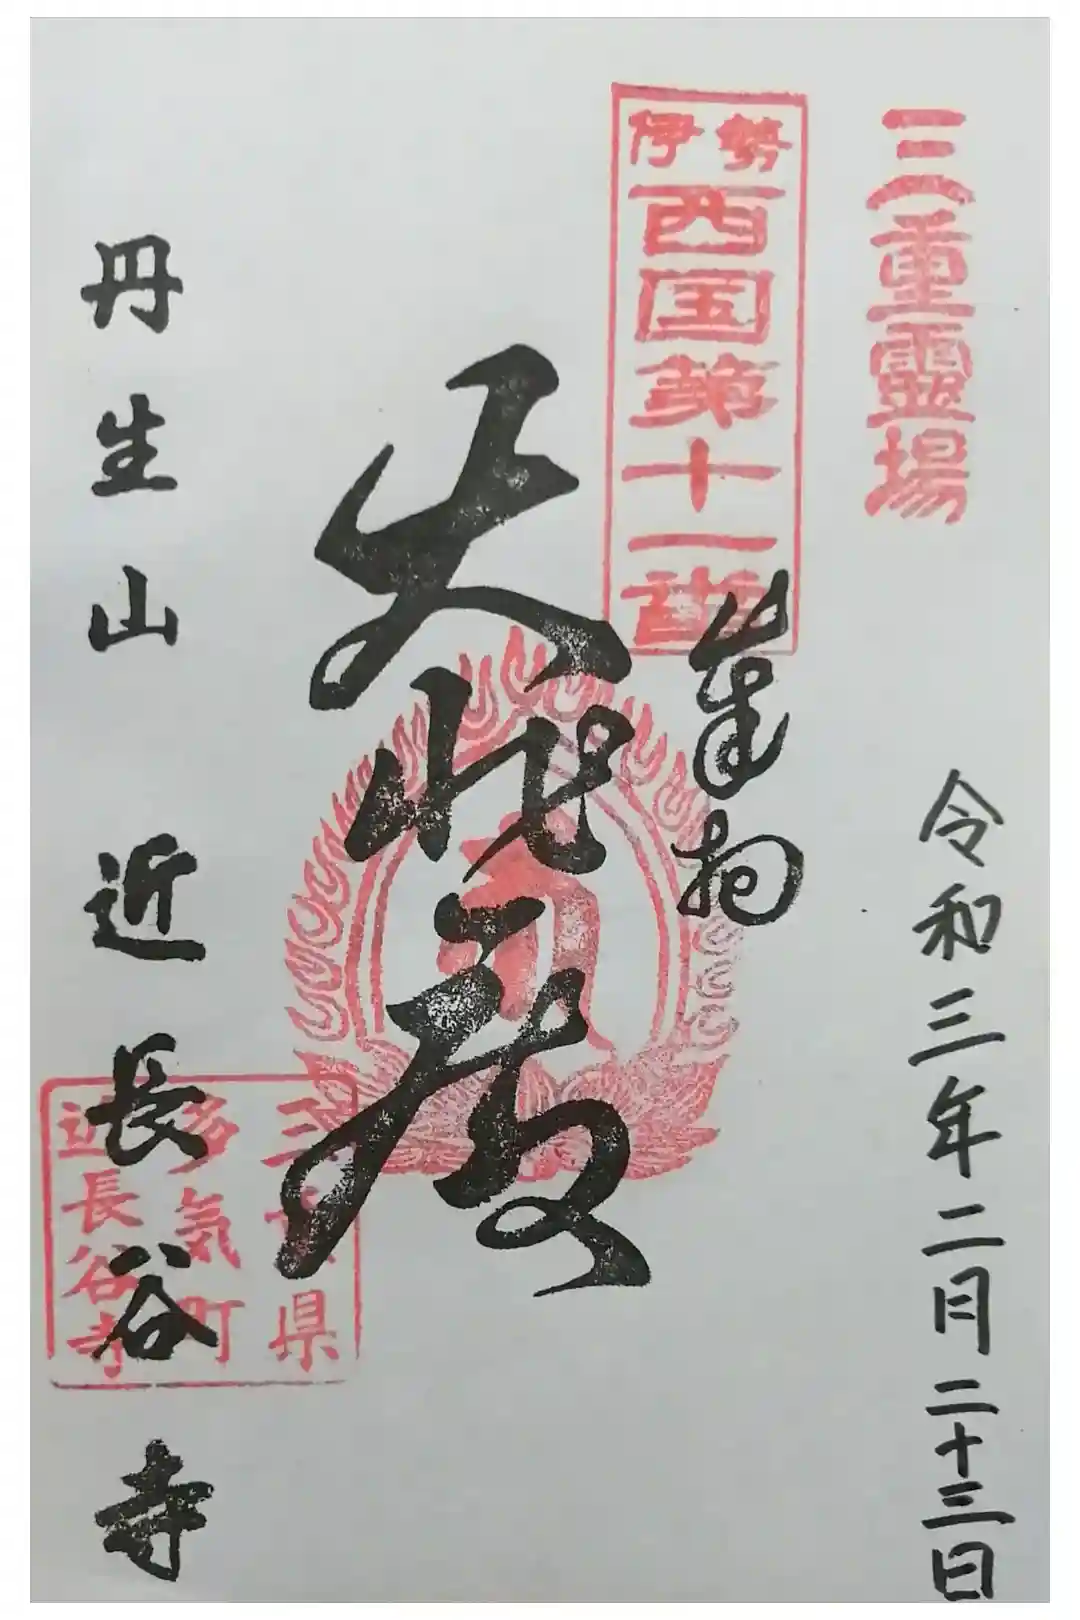 三重霊場
令和三年二月二十三日
伊勢
西国第十一番
奉拝
大悲殿
三重県
多気町
近長谷寺
丹生山 近長谷寺